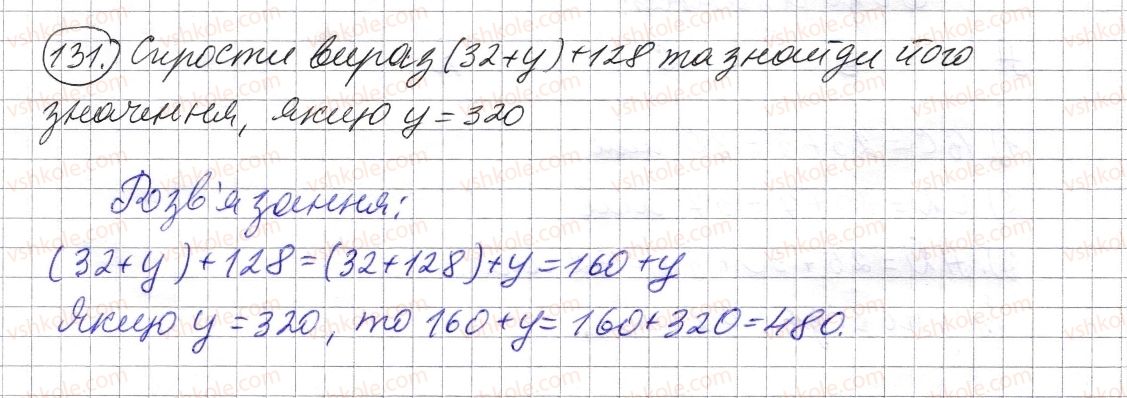 131. Спрости вираз (32+y)+128 та знайди його
значення, якщо y=320
Розв'язання:
(32+y)+128=(32+128)+y=160+y
Якщо y=320, то 160+y=160+320=480.